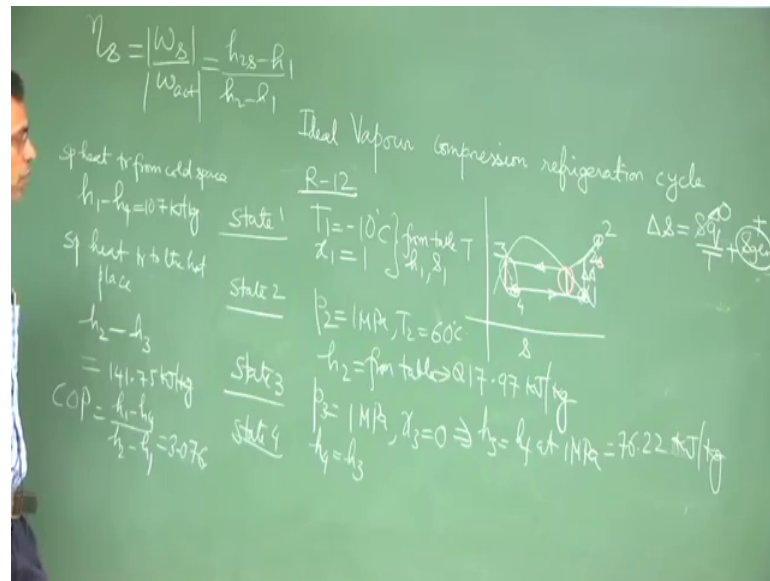 ηs = |Ws| / |Wact| = (h2s - h1) / (h2 - h1)
Ideal Vapour compression refrigeration cycle
sp heat tr from cold space
h1 - h4 = 107 kJ/kg
sp heat tr to the hot
place
h2 - h3
= 141.75 kJ/kg
COP = (h1 - h4) / (h2 - h1) = 3.076
R-12
State 1
T1 = -10°C
x1 = 1
} from table
h1, s1
State 2
P2 = 1 MPa, T2 = 60°C
h2 = from table ⇒ 217.97 kJ/kg
State 3
P3 = 1 MPa, x3 = 0 ⇒ h3 = hf at 1 MPa = 76.22 kJ/kg
State 4
h4 = h3
T
3
2
2s
4
1
s
Δs = δq/T + sgen
0
+